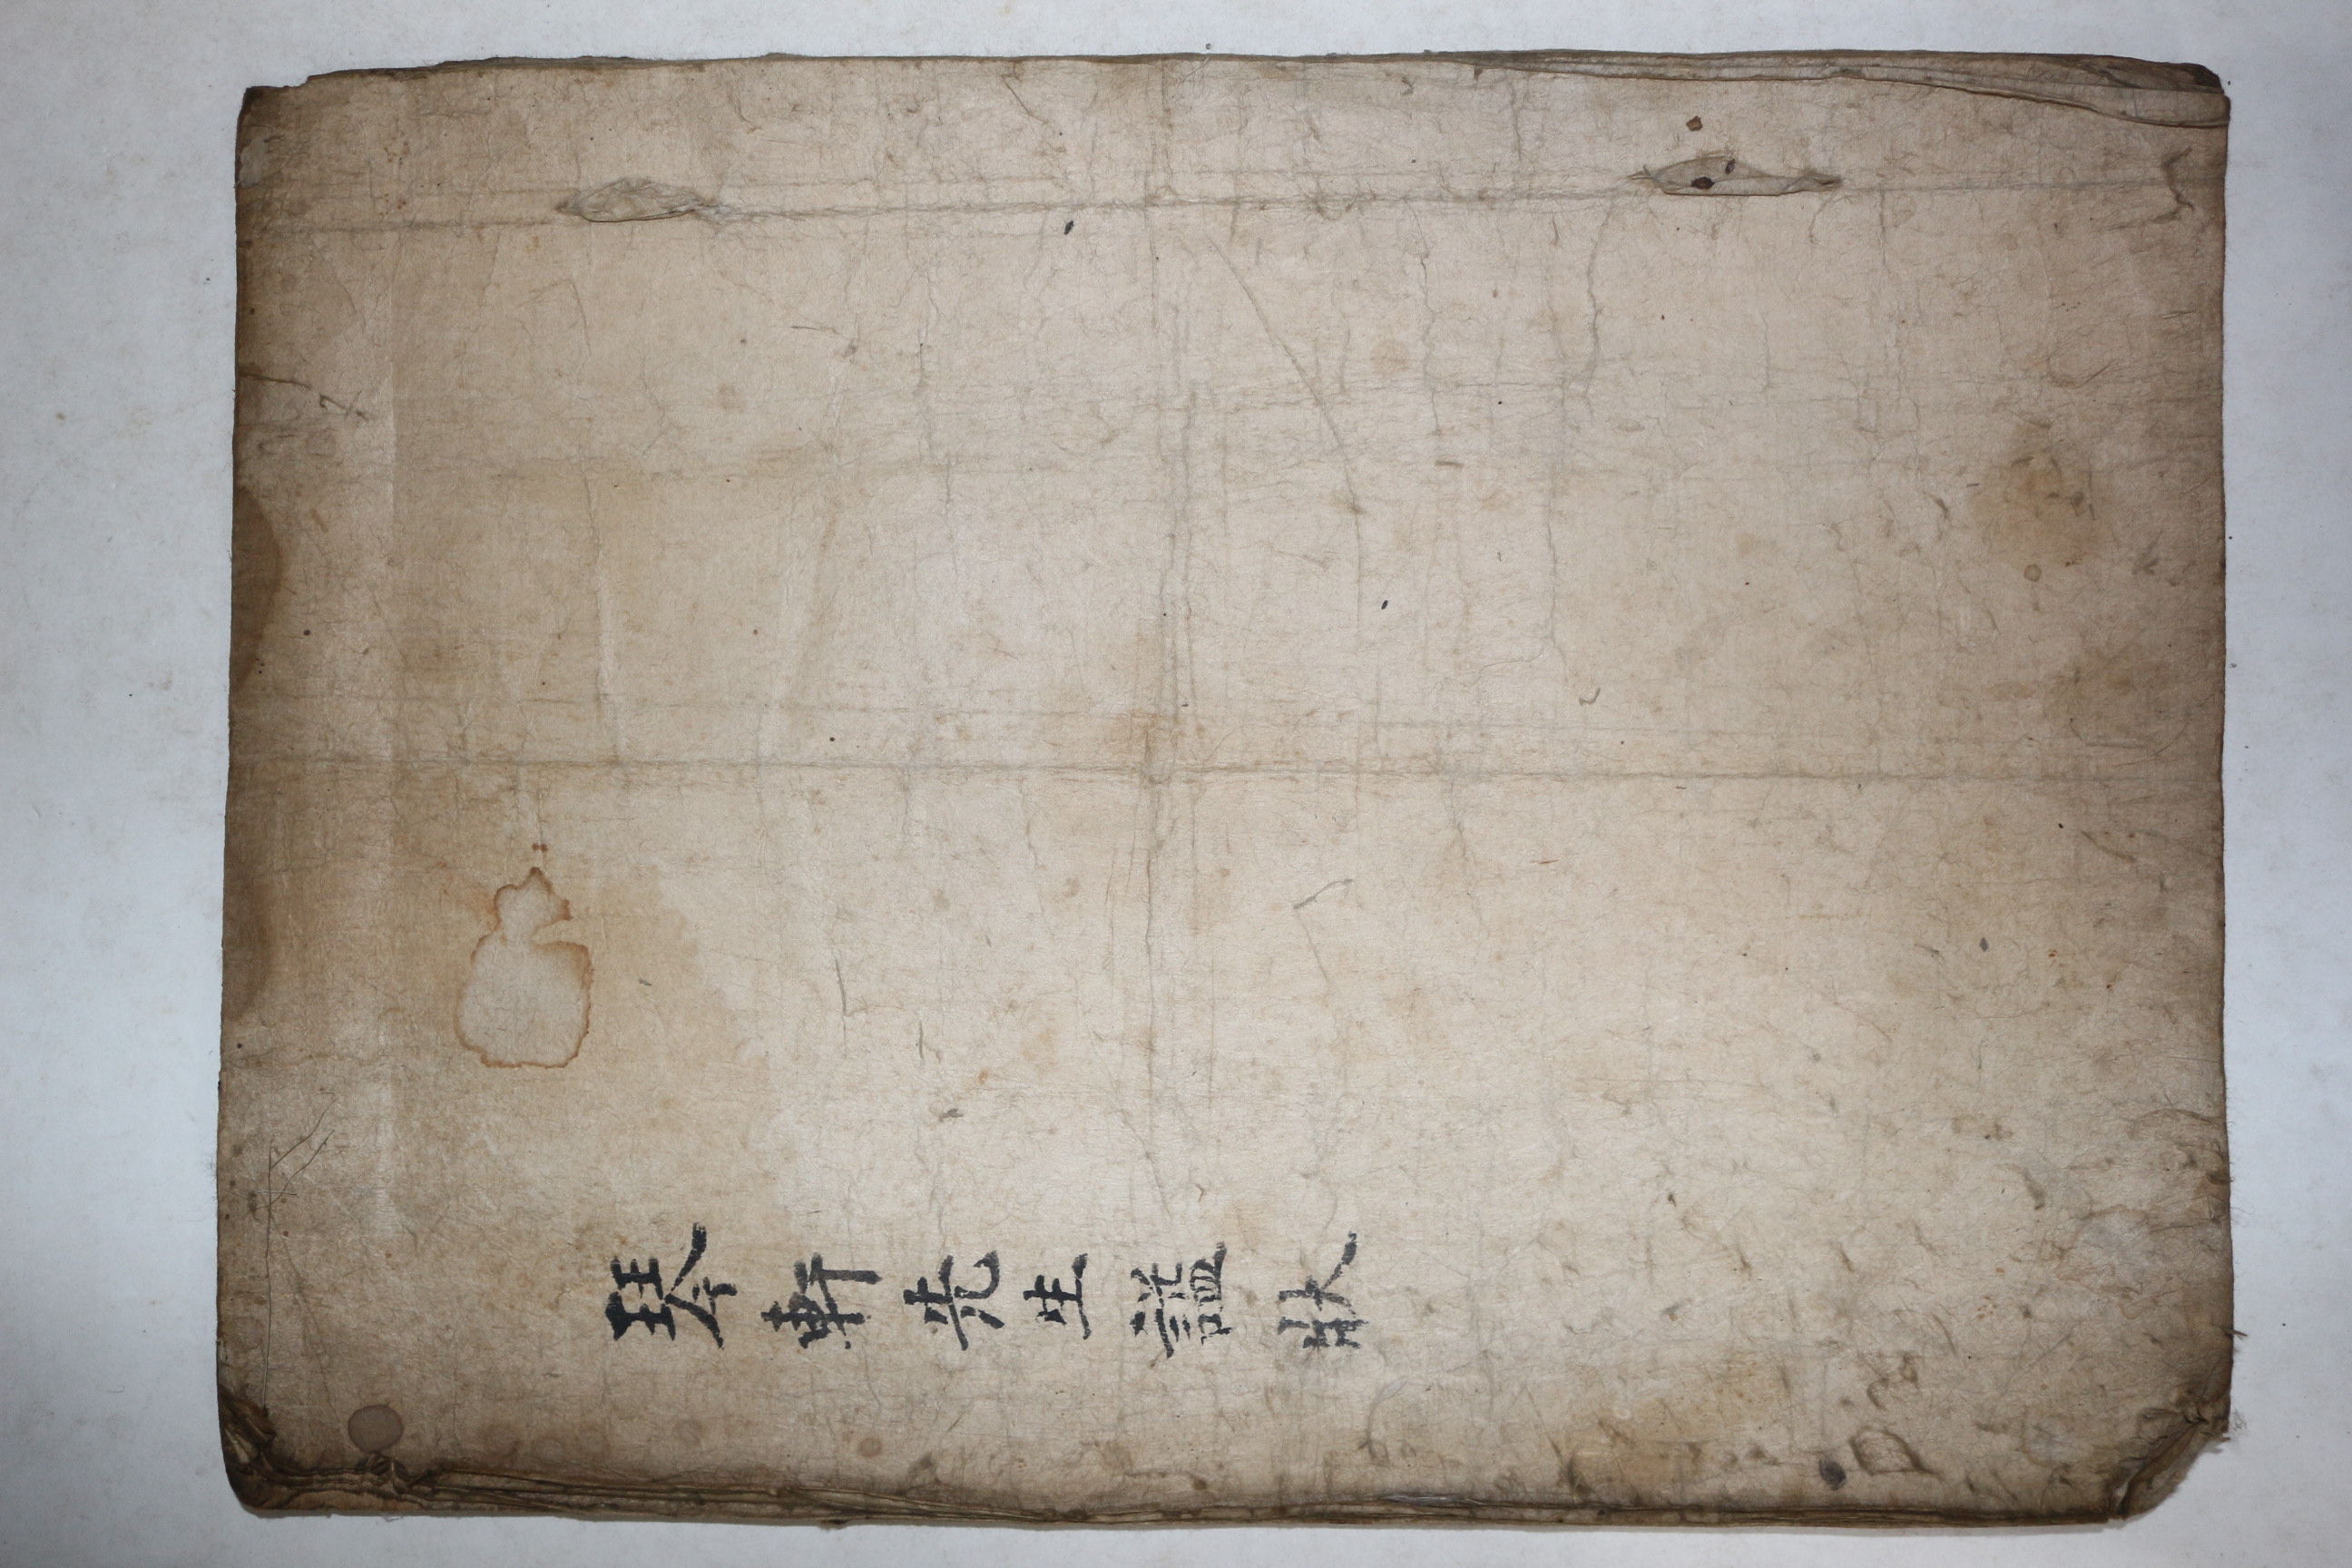 琴軒先生謚狀